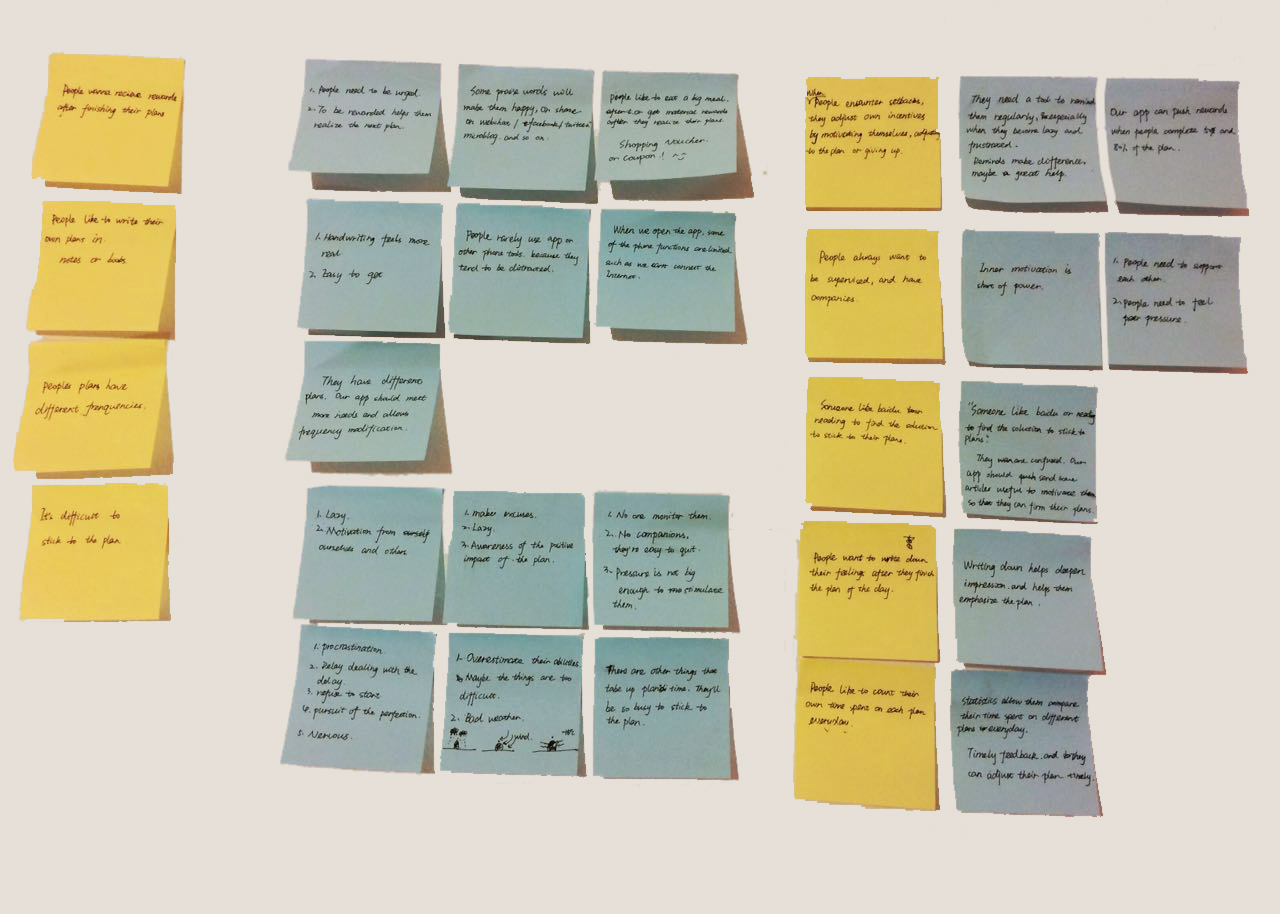 People wanna recieve rewards
after finishing their plans
1. People need to be urged.
2. To be rewarded helps them
realize the next plan.
Some praise words will
make them happy, or share
on webchat / facebook / twitter
microblog. and so on.
People like to eat a big meal.
or get material rewards
after they realize their plans.
Shopping Voucher.
or coupon!
People like to write their
own plans in
notes or books
1. Handwriting feels more
real
2. Easy to get
People rarely use app or
other phone tools. because they
tend to be distracted.
When we open the app, some
of the phone functions are limited
such as we can't connect the
Internet.
Peoples plans have
different frenquencies.
They have different
plans. Our app should meet
more needs and allows
frequency modification.
It's difficult to
stick to the plan.
1. Lazy.
2. Motivation from ourself
ourselves and others
1. makes excuses.
2. Lazy.
3. Awareness of the putitive
impact of the plan.
1. No one monitor them.
2. No companions,
they're easy to quit.
3. Pressure is not big
enough to stimulate
them.
1. procrastination.
2. Delay dealing with the
delay.
3. refuse to start
4. pursuit of the perfection.
5. Nervous.
1. Overestimate their abilities
Maybe the things are too
difficult.
2. Bad weather.
wind.
There are other things that
take up plan's time. They'll
be so busy to stick to
the plan.
When
People encounter setbacks,
they adjust own incentives
by motivating themselves, adjusting
to the plan or giving up.
They need a tool to remind
them regularly, especially
when they become lazy and
frustrated.
Reminds make difference,
maybe a great help.
Our app can push rewards
when people complete and
80% of the plan.
People always want to
be supervised, and have
companies.
Inner motivation is
short of power.
1. People need to support
each other.
2. people need to feel
peer pressure.
Someone like baidu
reading to find the solution
to stick to their plans.
"Someone like baidu or reading
to find the solution to stick to
plans."
They are confused. Our
app should push send some
articles useful to motivate them
so that they can firm their plans.
People want to write down
their feelings after they finish
the plan of the day.
Writing down helps deepen
impression. and helps them
emphasize the plan.
People like to count their
own time spent on each plan
everyday.
Statistics allow them compare
their time spent on different
plans everyday.
Timely feedback. and they
can adjust their plan timely.